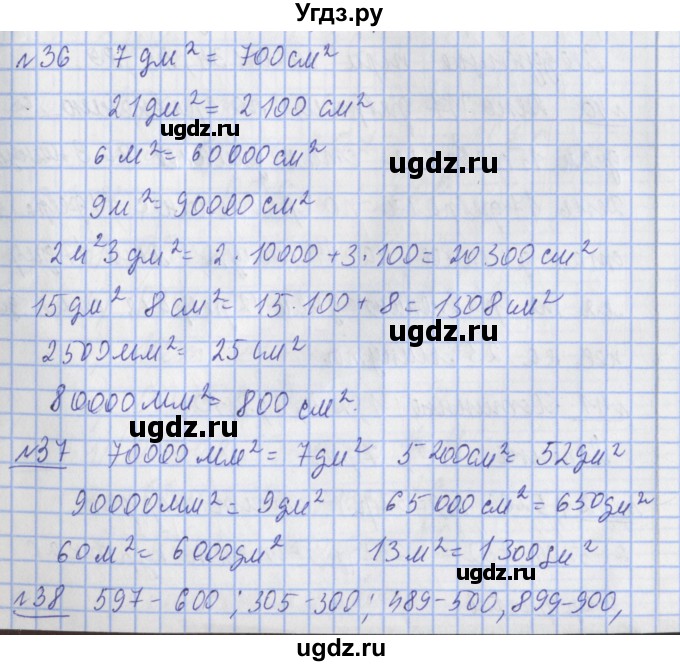 Угдз.ру
№36 7 дм² = 700 см²
21 дм² = 2100 см²
ugdz.ru ugdz.ru
6 м² = 60000 см²
9 м² = 90000 см²
2 м² 3 дм² = 2 · 10000 + 3 · 100 = 20300 см²
15 дм² 8 см² = 15 · 100 + 8 = 1508 см²
ugdz.ru
2500 мм² = 25 см²
80000 мм² = 800 см².
ugdz.ru
№37 70000 мм² = 7 дм² 5 200 см² = 52 дм²
90000 мм² = 9 дм² 65 000 см² = 650 дм²
60 м² = 6000 дм² 13 м² = 1300 дм²
ugdz.ru
№38 597 - 600 ; 305 - 300 ; 489 - 500, 899 - 900,
ugdz.ru ugdz.ru